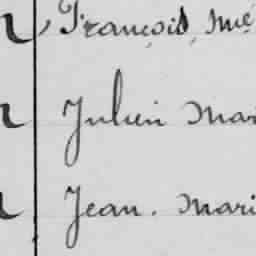 François Me
Julien Mar
Jean. Mari